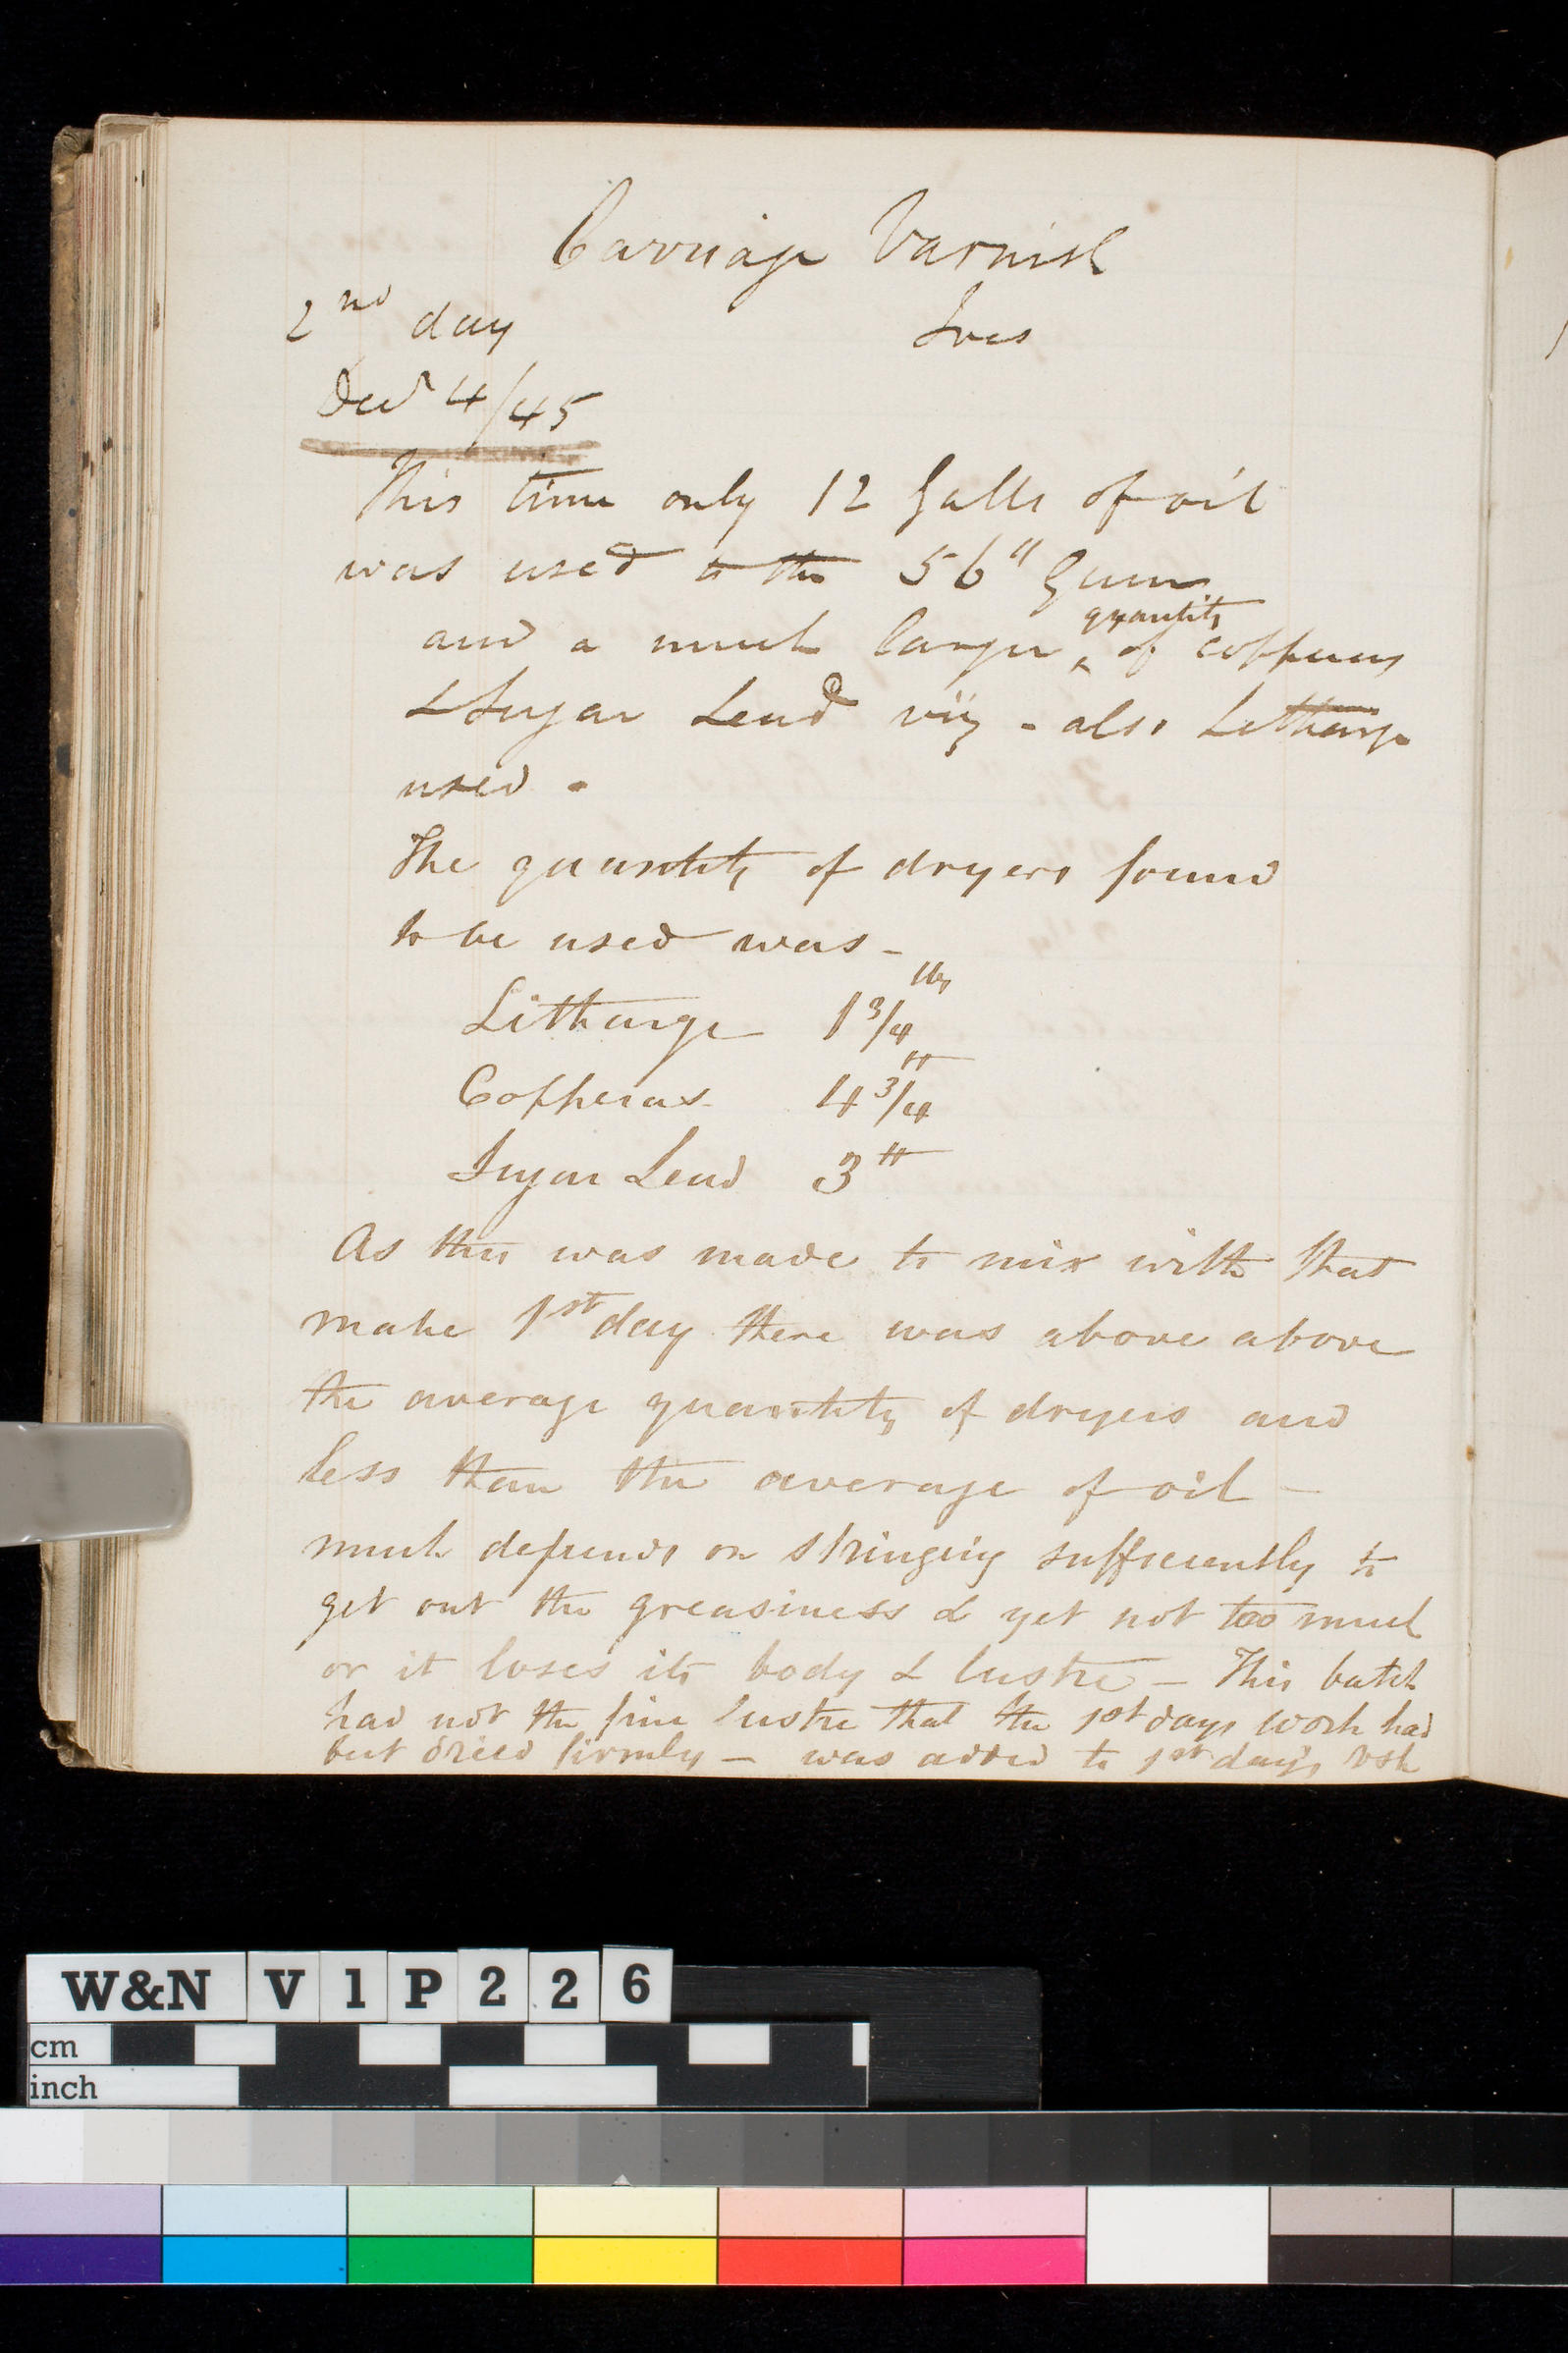 Carriage Varnish
2nd day Ives
Decr 4/45
This time only 12 Galls of oil
was used to the 56" Gum
and a much larger quantity of copperas
& Sugar Lead viz - also Litharge
used -
The quantity of dryers found
to be used was -
Litharge 1 3/4 lbs
Copperas 4 3/4 "
Sugar Lead 3 "
As this was made to mix with that
make 1st day there was above above
the average quantity of dryers and
less than the average of oil -
much depends on stringing sufficiently to
get out the greasiness & yet not too much
or it loses its body & lustre - This batch
had not the fine lustre that the 1st days work had
but dried firmly - was added to 1st day's Vsh
W&N V1P226
cm
inch